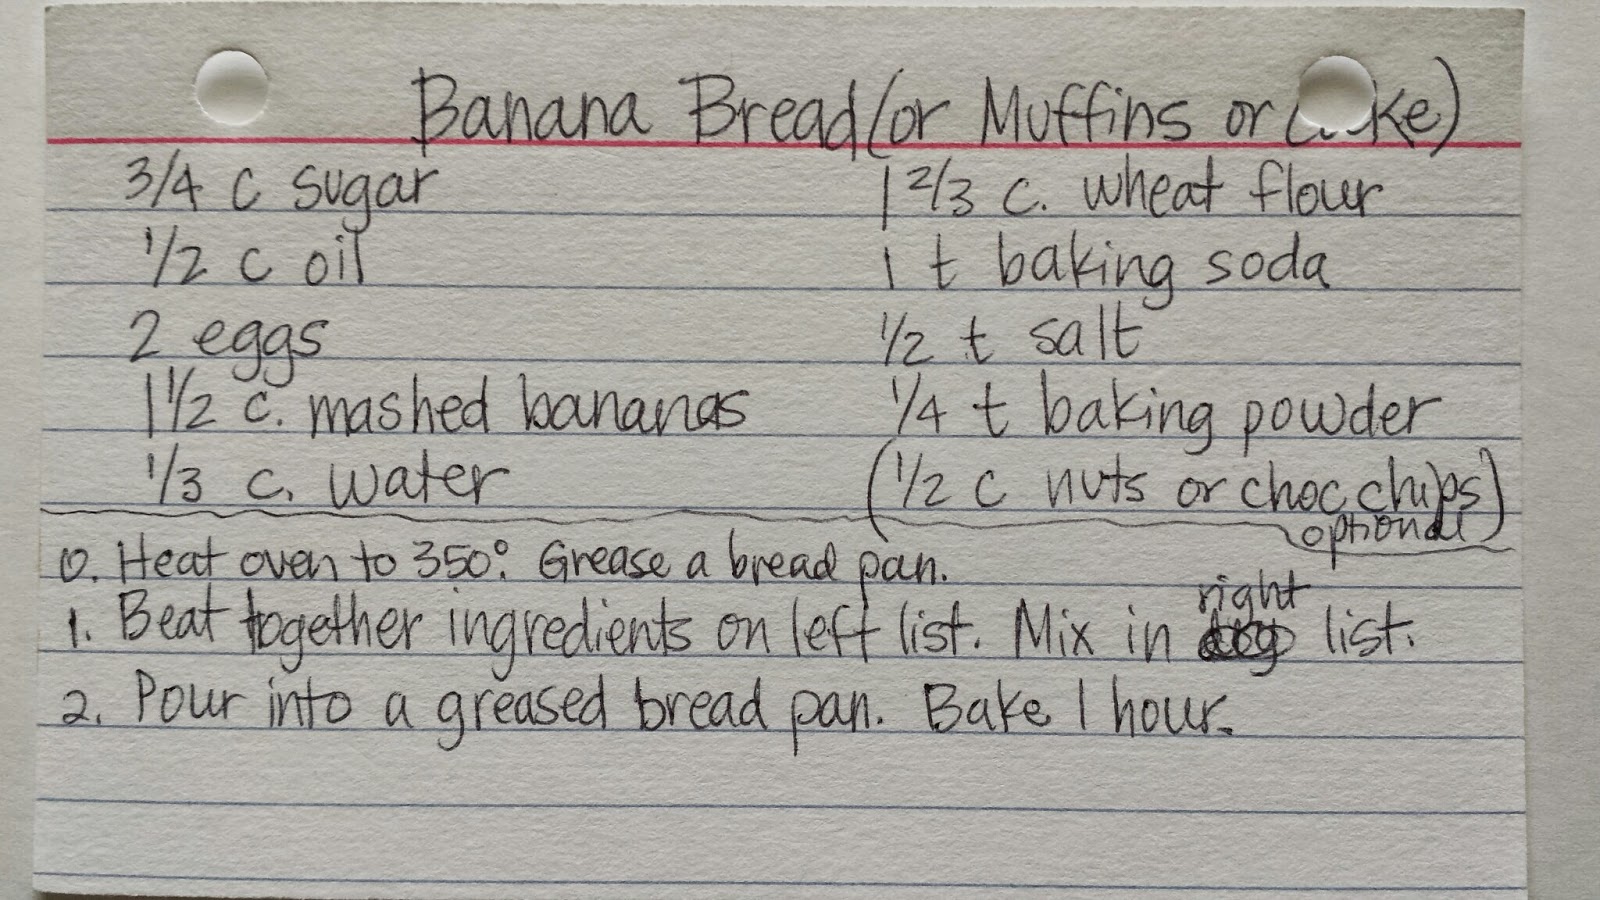 Banana Bread (or Muffins or Cake)
3/4 c sugar
1/2 c oil
2 eggs
1 1/2 c. mashed bananas
1/3 c. water
1 2/3 c. wheat flour
1 t baking soda
1/2 t salt
1/4 t baking powder
(1/2 c nuts or choc chips)
optional
0. Heat oven to 350°. Grease a bread pan.
1. Beat together ingredients on left list. Mix in right list.
2. Pour into a greased bread pan. Bake 1 hour.